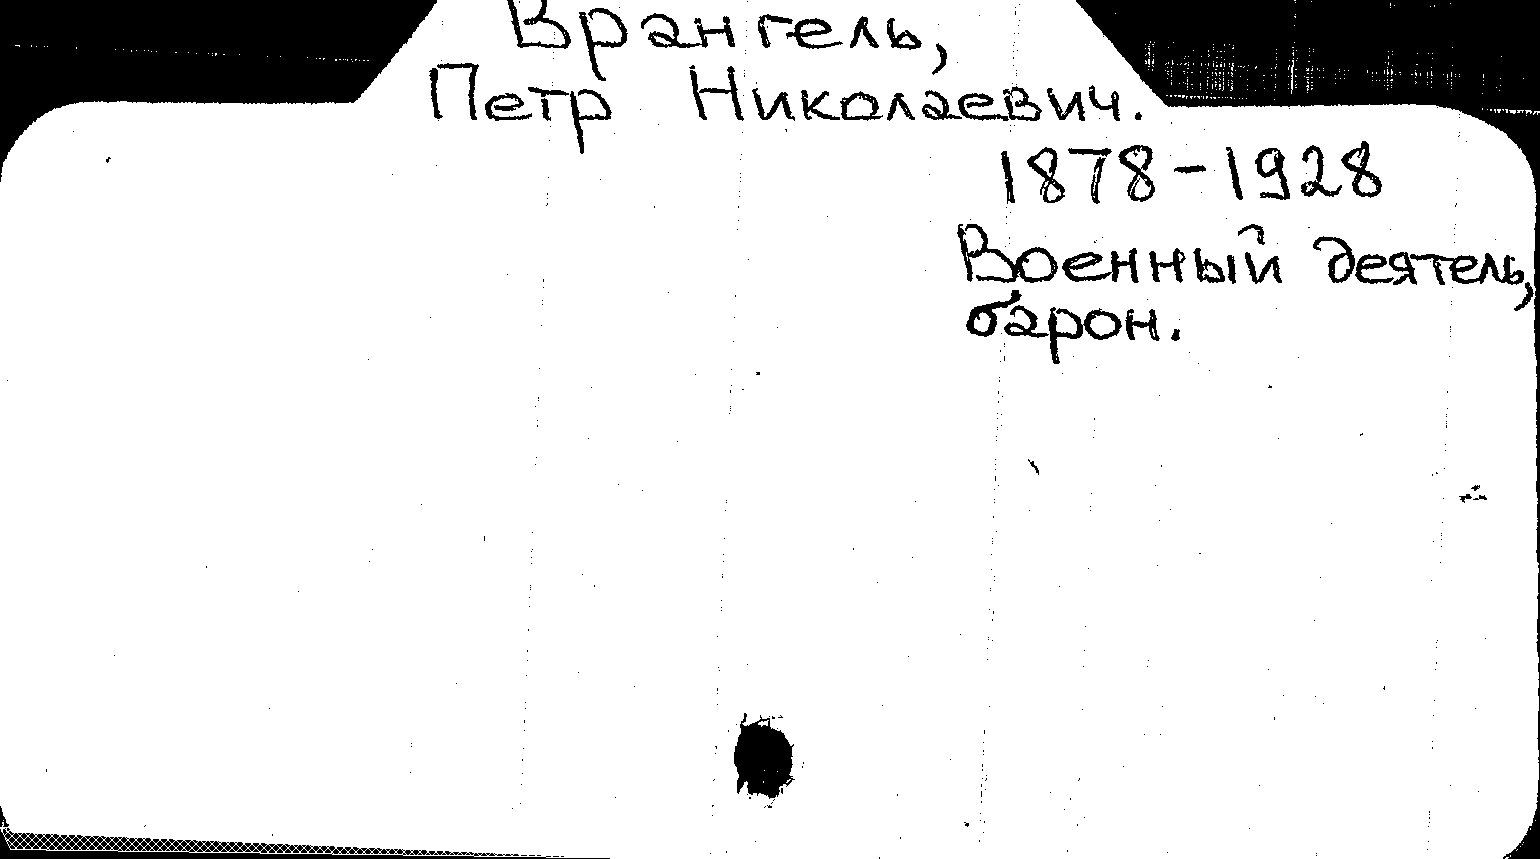 Врангель,
Петр Николаевич.
1878-1928
Военный деятель,
барон.